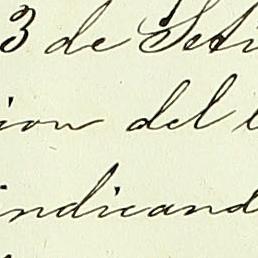 3 de Seti
ion del
indicand